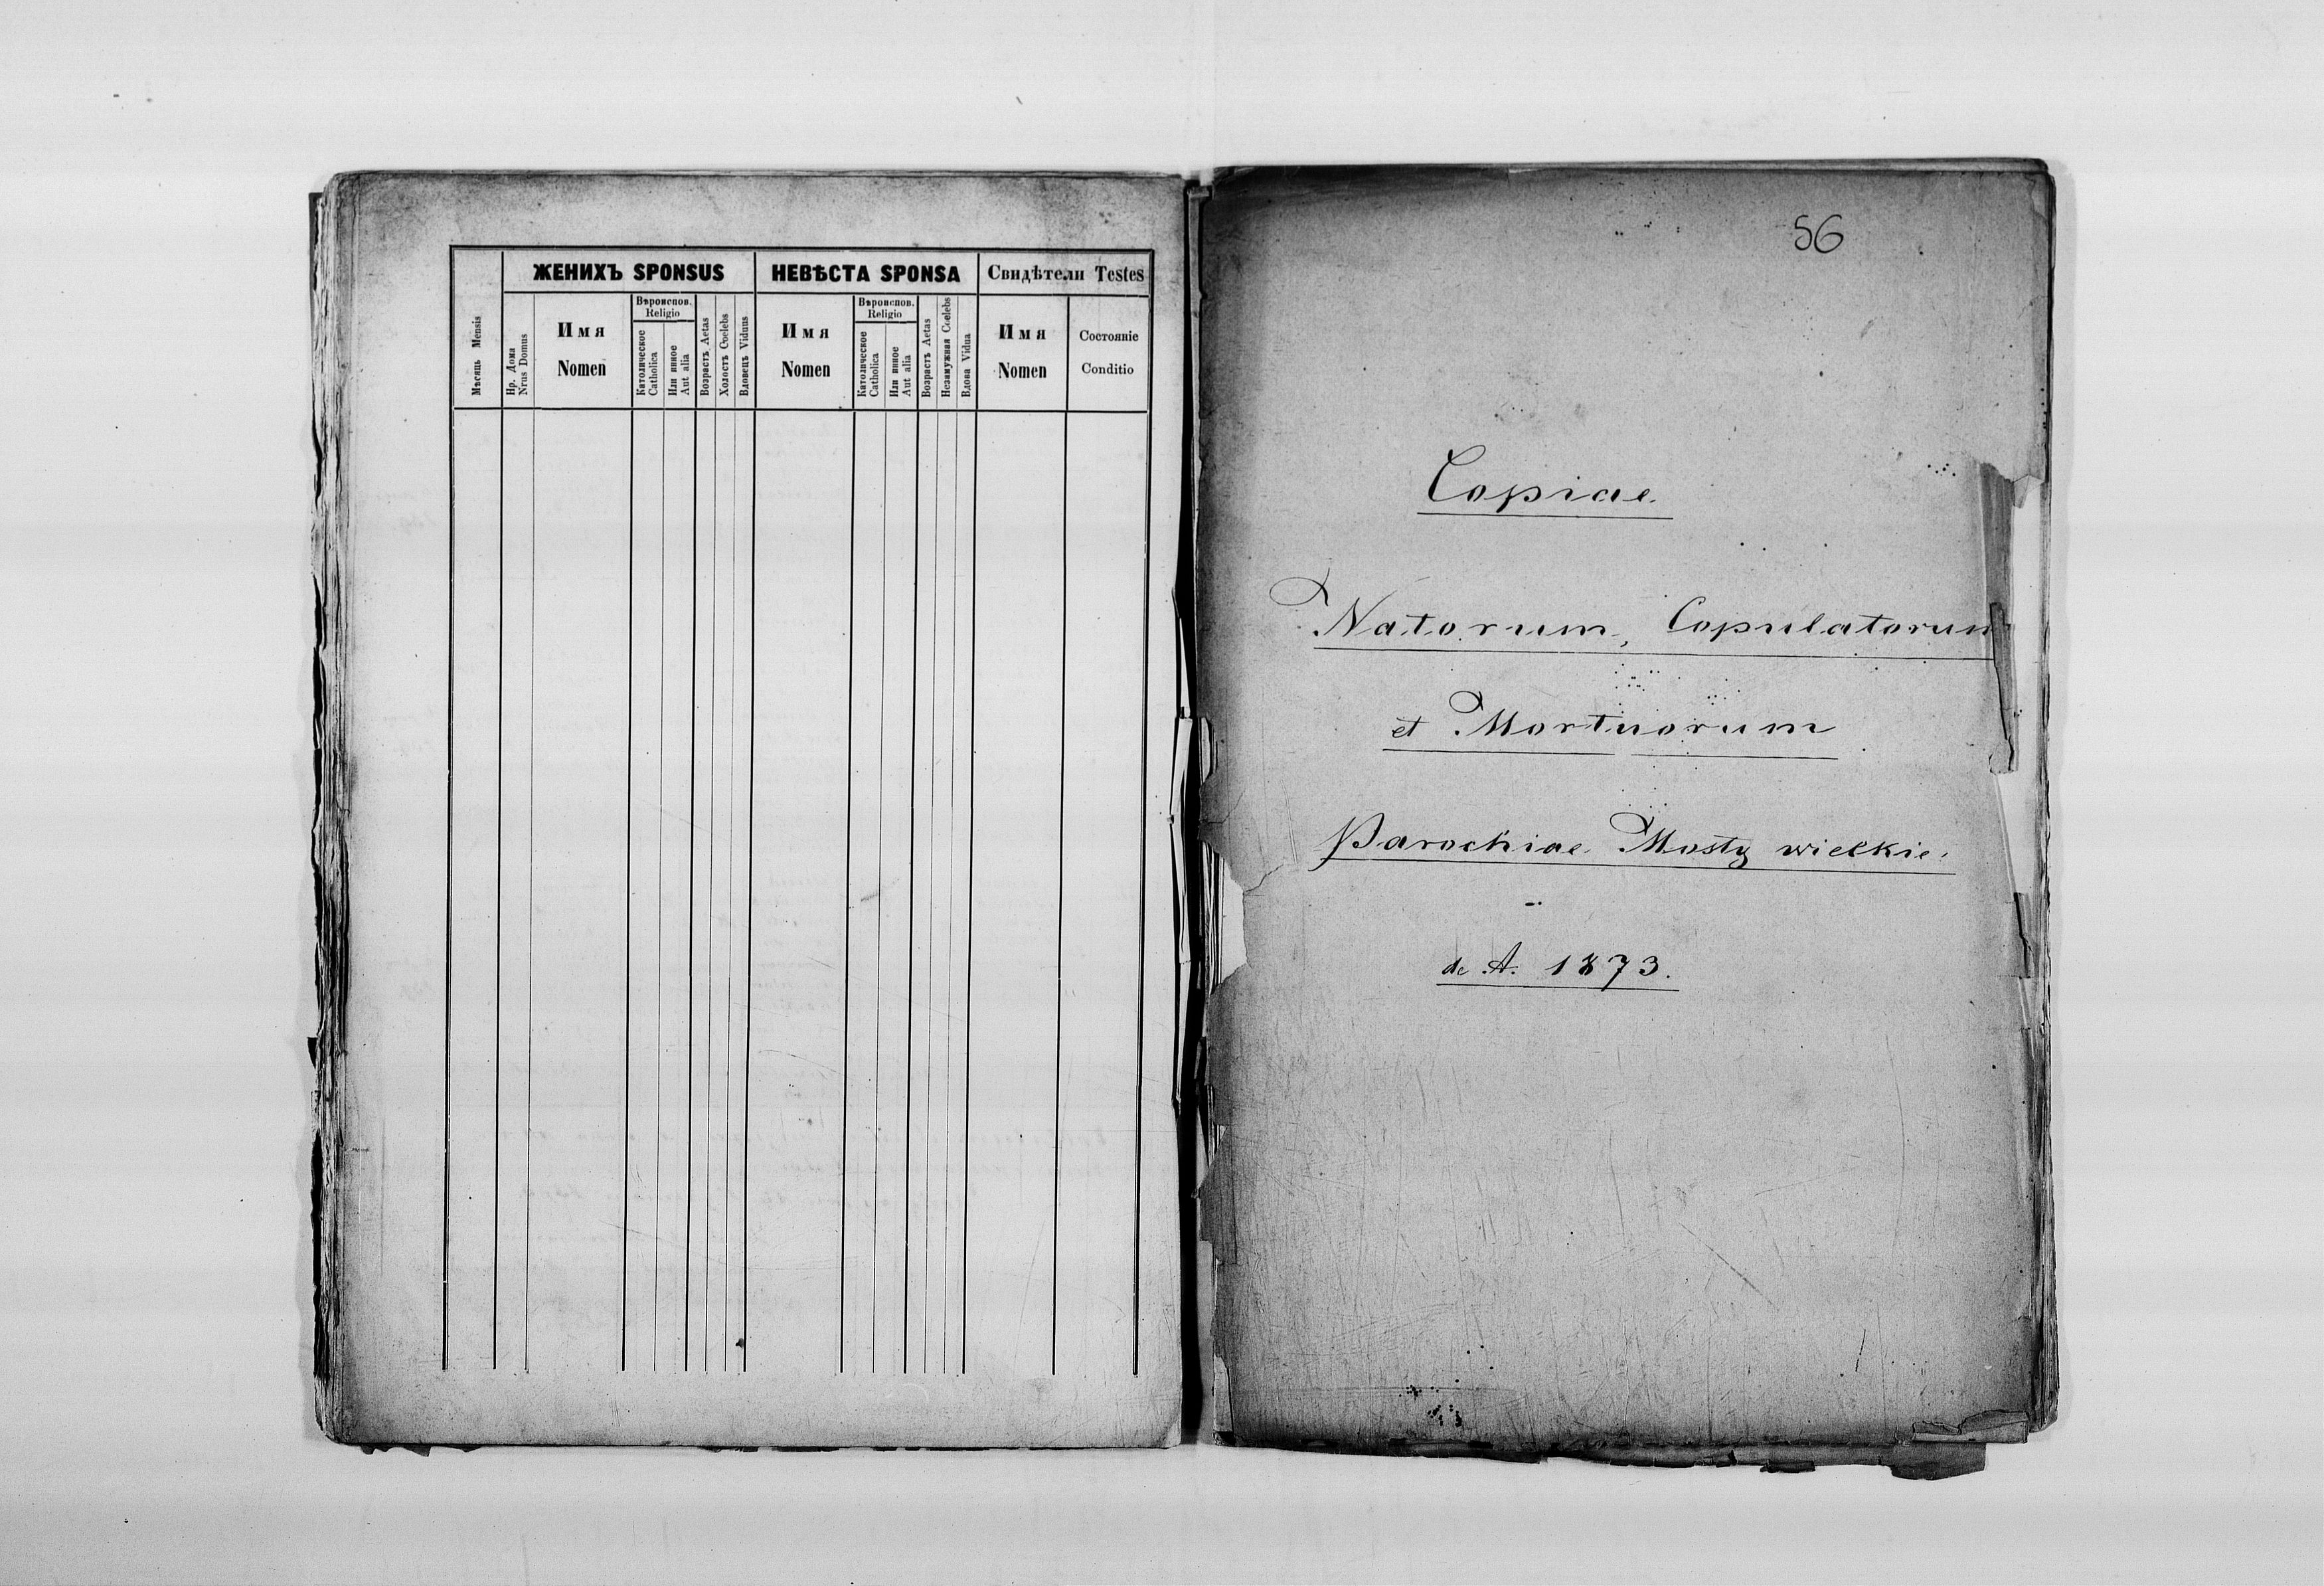 ЖЕНИХЪ SPONSUS
НЕВѢСТА SPONSA
Свидѣтели Testes
Мѣсяць Mensis
Нр. Дома
Nrus Domus
Имя
Nomen
Вѣроиспов.
Religio
Католическое
Catholica
Или иное
Aut alia
Возрастъ Aetas
Холостъ Coelebs
Вдовецъ Viduus
Имя
Nomen
Вѣроиспов.
Religio
Католическое
Catholica
Или иное
Aut alia
Возрастъ Aetas
Незамужная Coelebs
Вдова Vidua
Имя
Nomen
Состояніе
Conditio
56
Copiae
Natorum, Copulatorum
et Mortuorum
Parochiae Mosty wielkie.
de A. 1873.